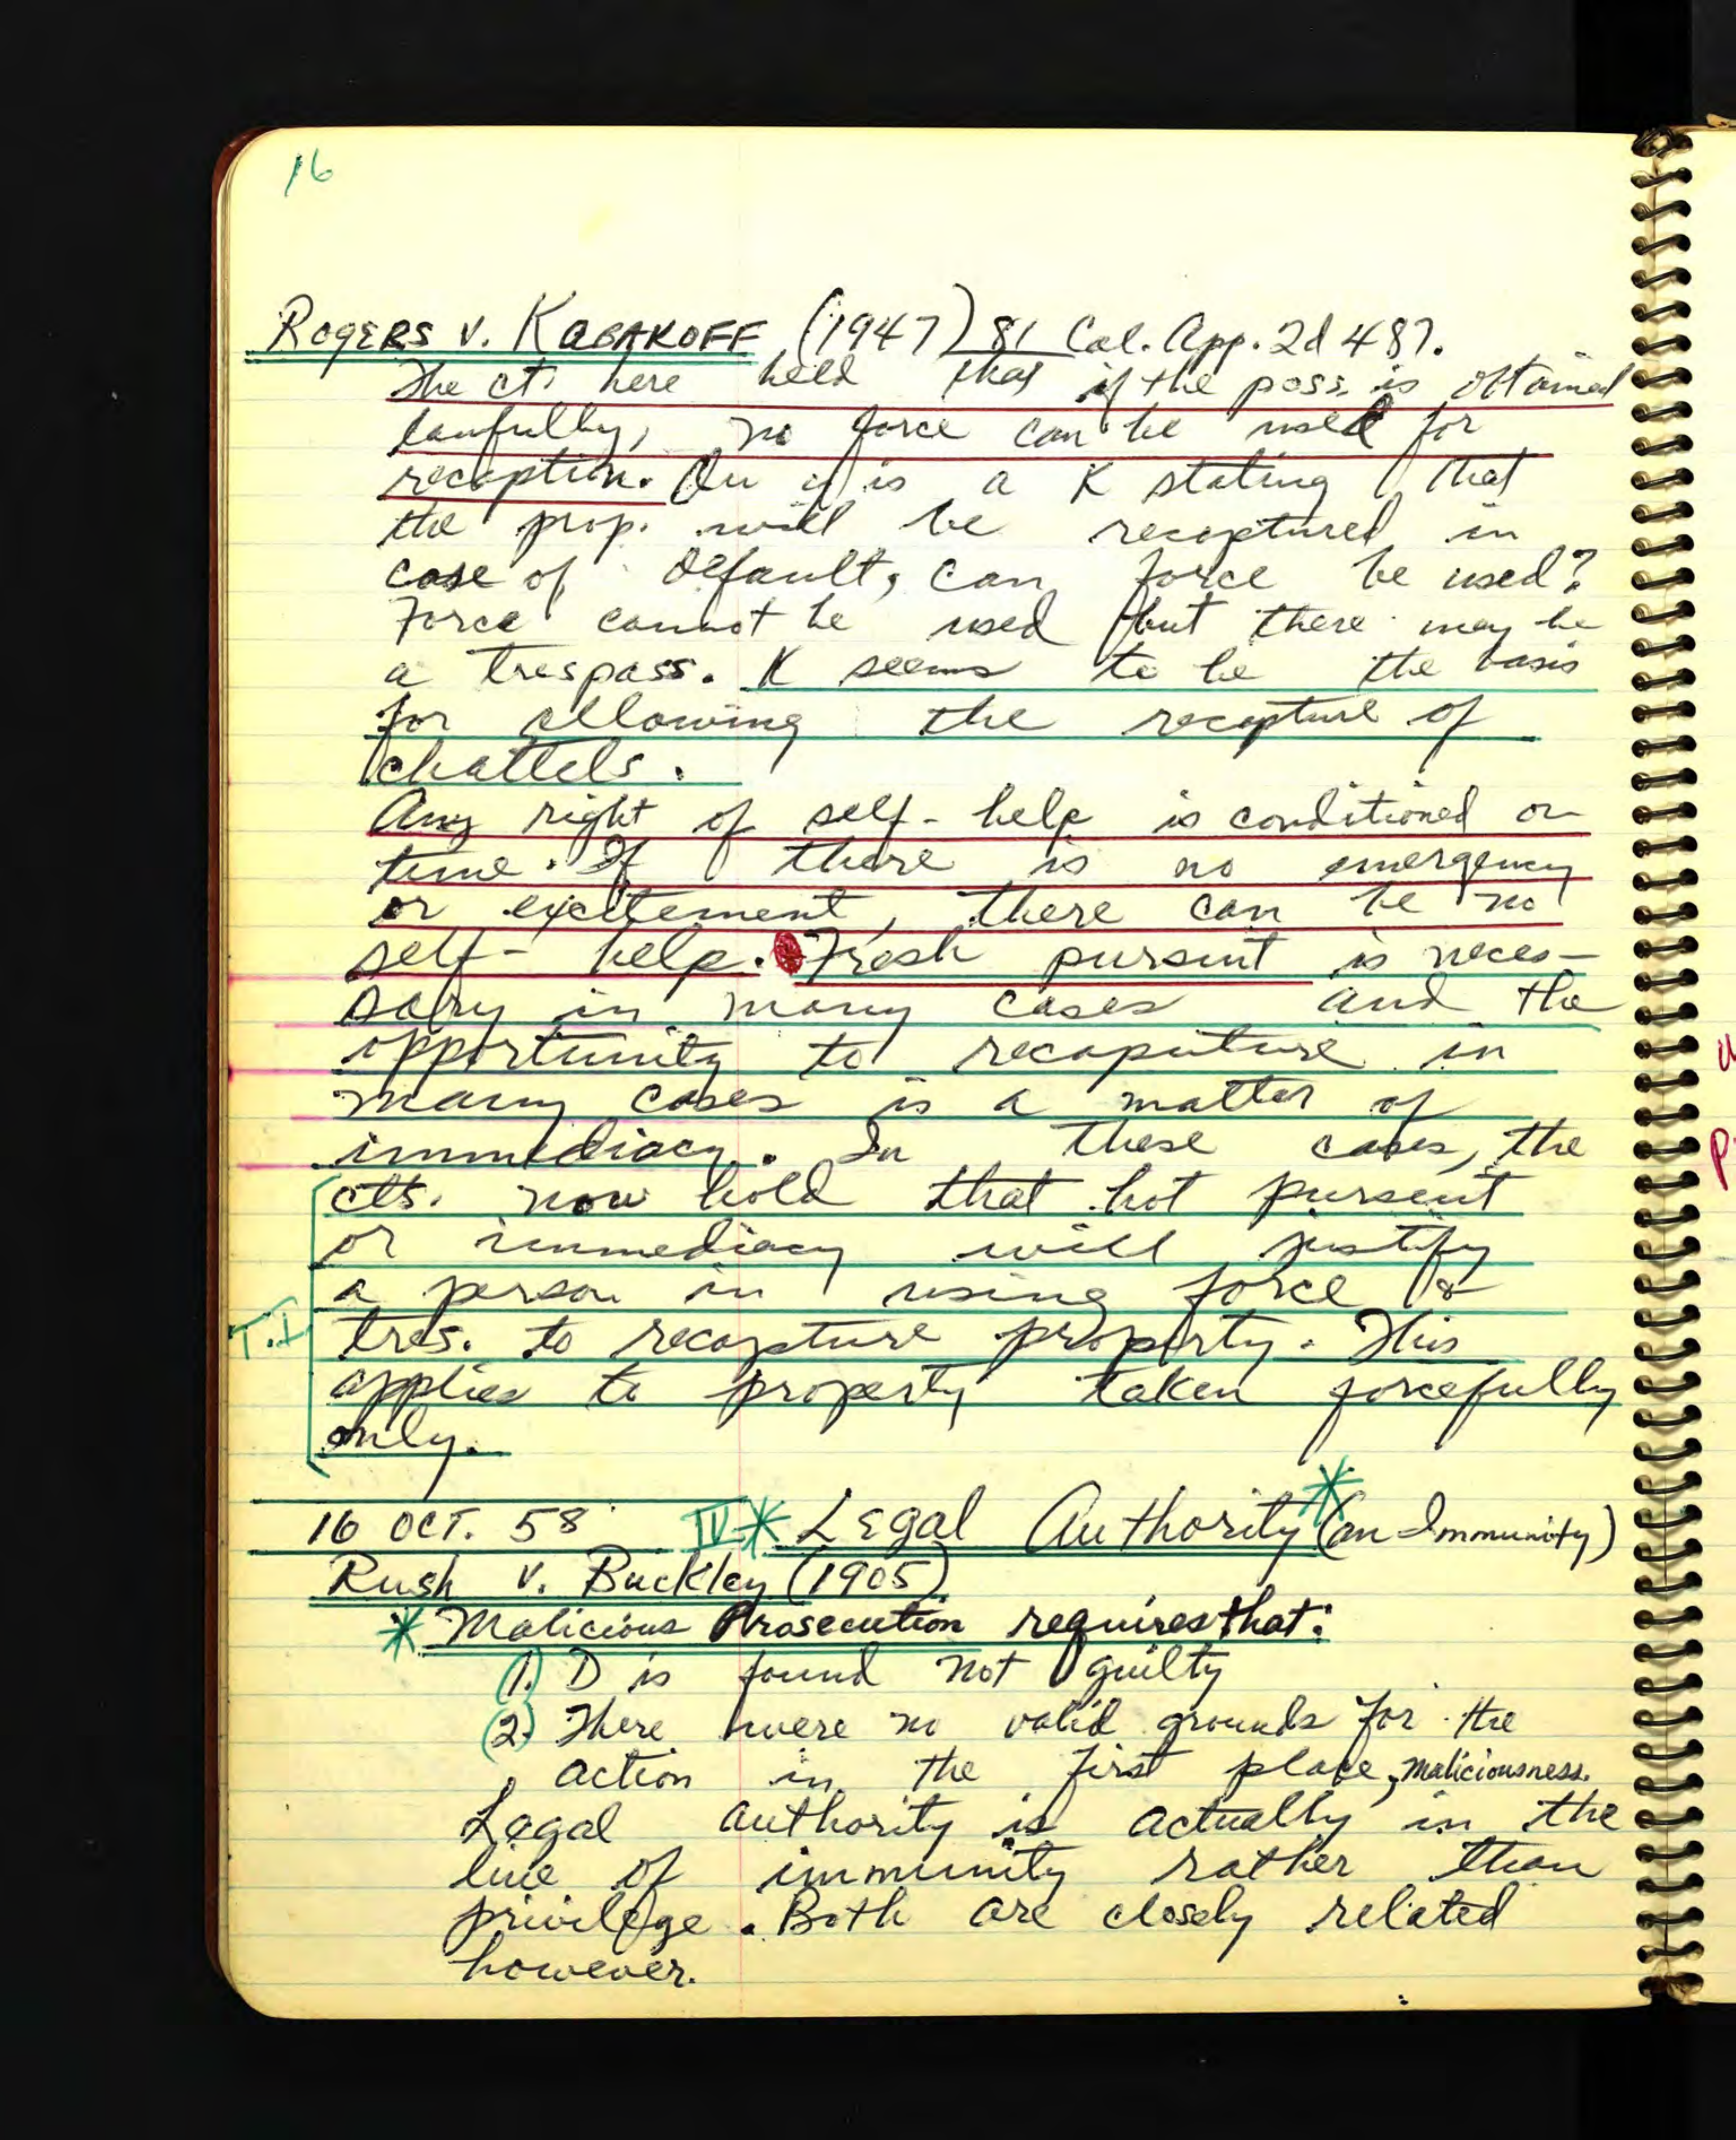 16
ROGERS v. KABAKOFF (1947) 81 Cal. App. 2d 487.
The ct. here held that if the poss. is obtained
lawfully, no force can be used for
recaption. Qu if is a K stating that
the prop. will be recaptured in
case of default, can force be used?
Force cannot be used but there may be
a trespass. K seems to be the basis
for allowing the recapture of
chattels.
Any right of self-help is conditioned on
time. If there is no emergency
or excitement, there can be no
self-help. Fresh pursuit is neces-
sary in many cases and the
opportunity to recaputure in
many cases is a matter of
immediacy. In these cases, the
cts. now hold that hot pursuit
or immediacy will justify
a person in using force &
T.I tres. to recapture property. This
applies to property taken forcefully
only.
16 OCT. 58 IV.* Legal Authority* (an Immunity)
Rush v. Buckley (1905)
* Malicious Prosecution requires that:
(1.) D is found not guilty
(2.) There were no valid grounds for the
action in the first place, maliciousness.
Legal authority is actually in the
line of immunity rather than
privilege. Both are closely related
however.